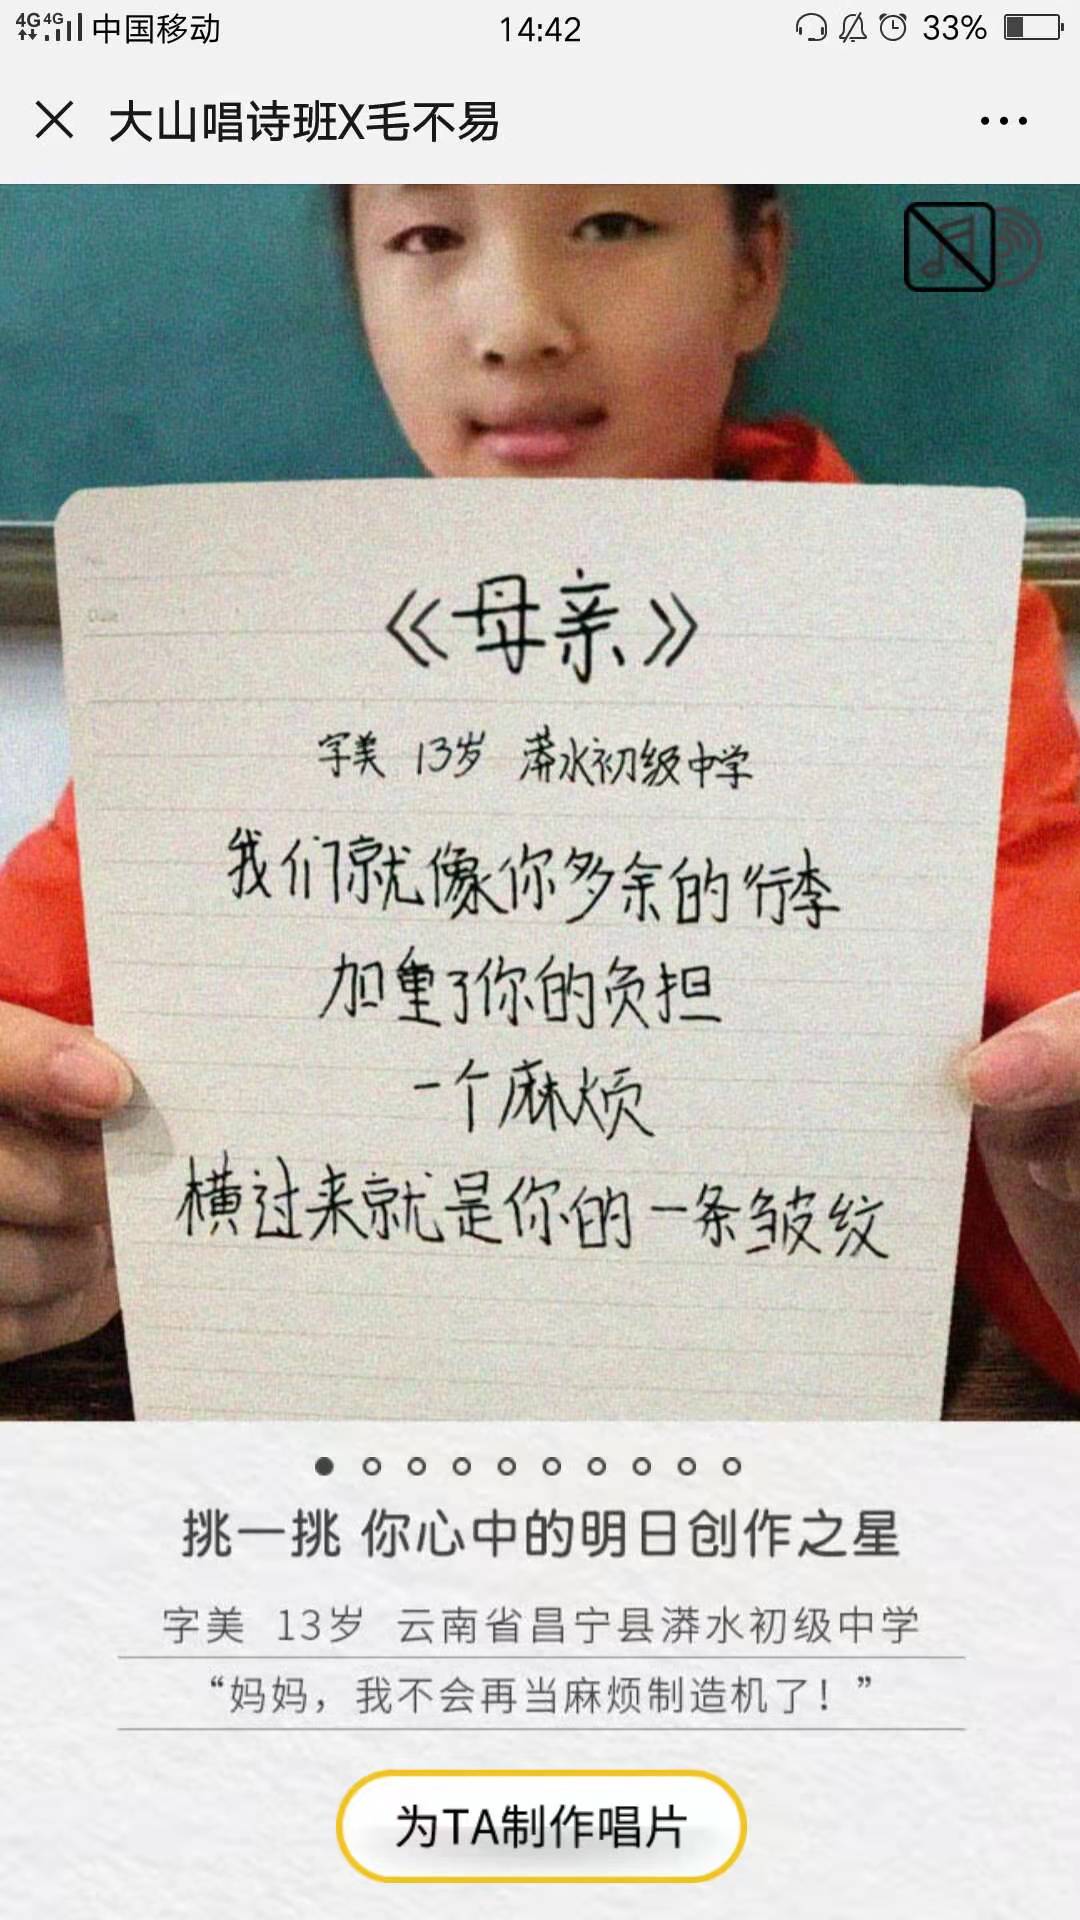 4G 4G 中国移动 14:42 33%
大山唱诗班X毛不易
Date
《母亲》
字美 13岁 漭水初级中学
我们就像你多余的行李
加重了你的负担
一个麻烦
横过来就是你的一条皱纹
挑一挑 你心中的明日创作之星
字美 13岁 云南省昌宁县漭水初级中学
“妈妈，我不会再当麻烦制造机了！”
为TA制作唱片